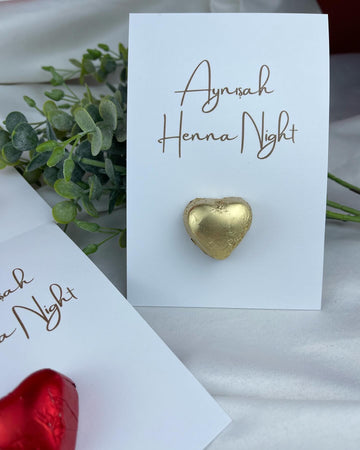 Aynışah
Henna Night
ışah
a Night